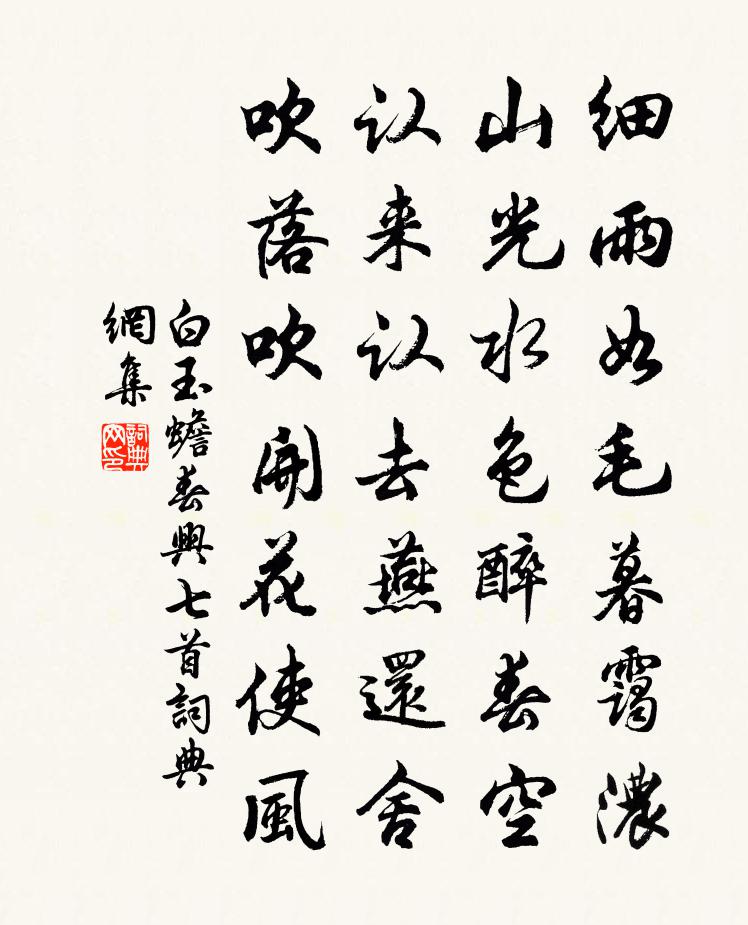 细雨如毛暮霭濃
山光水色醉春空
认来认去燕還舍
吹落吹開花使風
白玉蟾春興七首詞典
網集
詞典网印